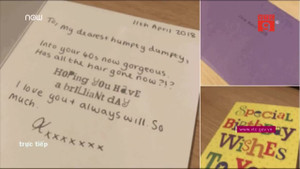 now
11th April 2018
To, My dearest humpty dumpty,
Into your 40s now gorgeous.
Has all the hair gone now?!?
Hoping You Have
a briLLiaNt dAY
I love you + always will. So
much.
xxxxxxxx
trực tiếp
Special
Birthday
Wishes
To You